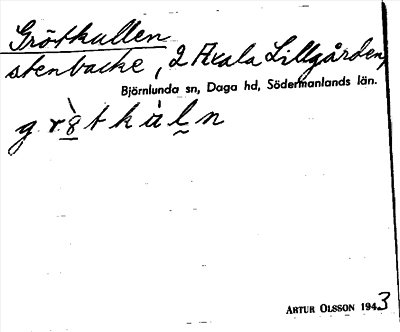 Grötkullen
stenbacke, 2 Axala Lillgården,
Björnlunda sn, Daga hd, Södermanlands län.
g r ö̀ t k ù l n
ARTUR OLSSON 1943